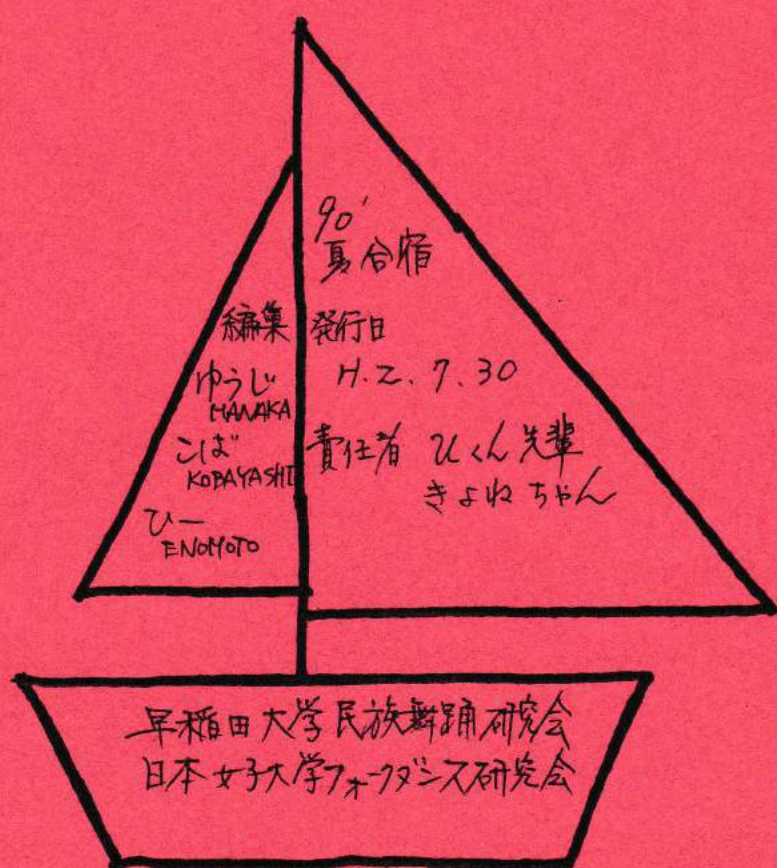 90'
夏合宿
編集
ゆうじ
MANAKA
こば
KOBAYASHI
ひー
ENOMOTO
発行日
H.2.7.30
責任者 ひくん先輩
きよねちゃん
早稲田大学民族舞踊研究会
日本女子大学フォークダンス研究会